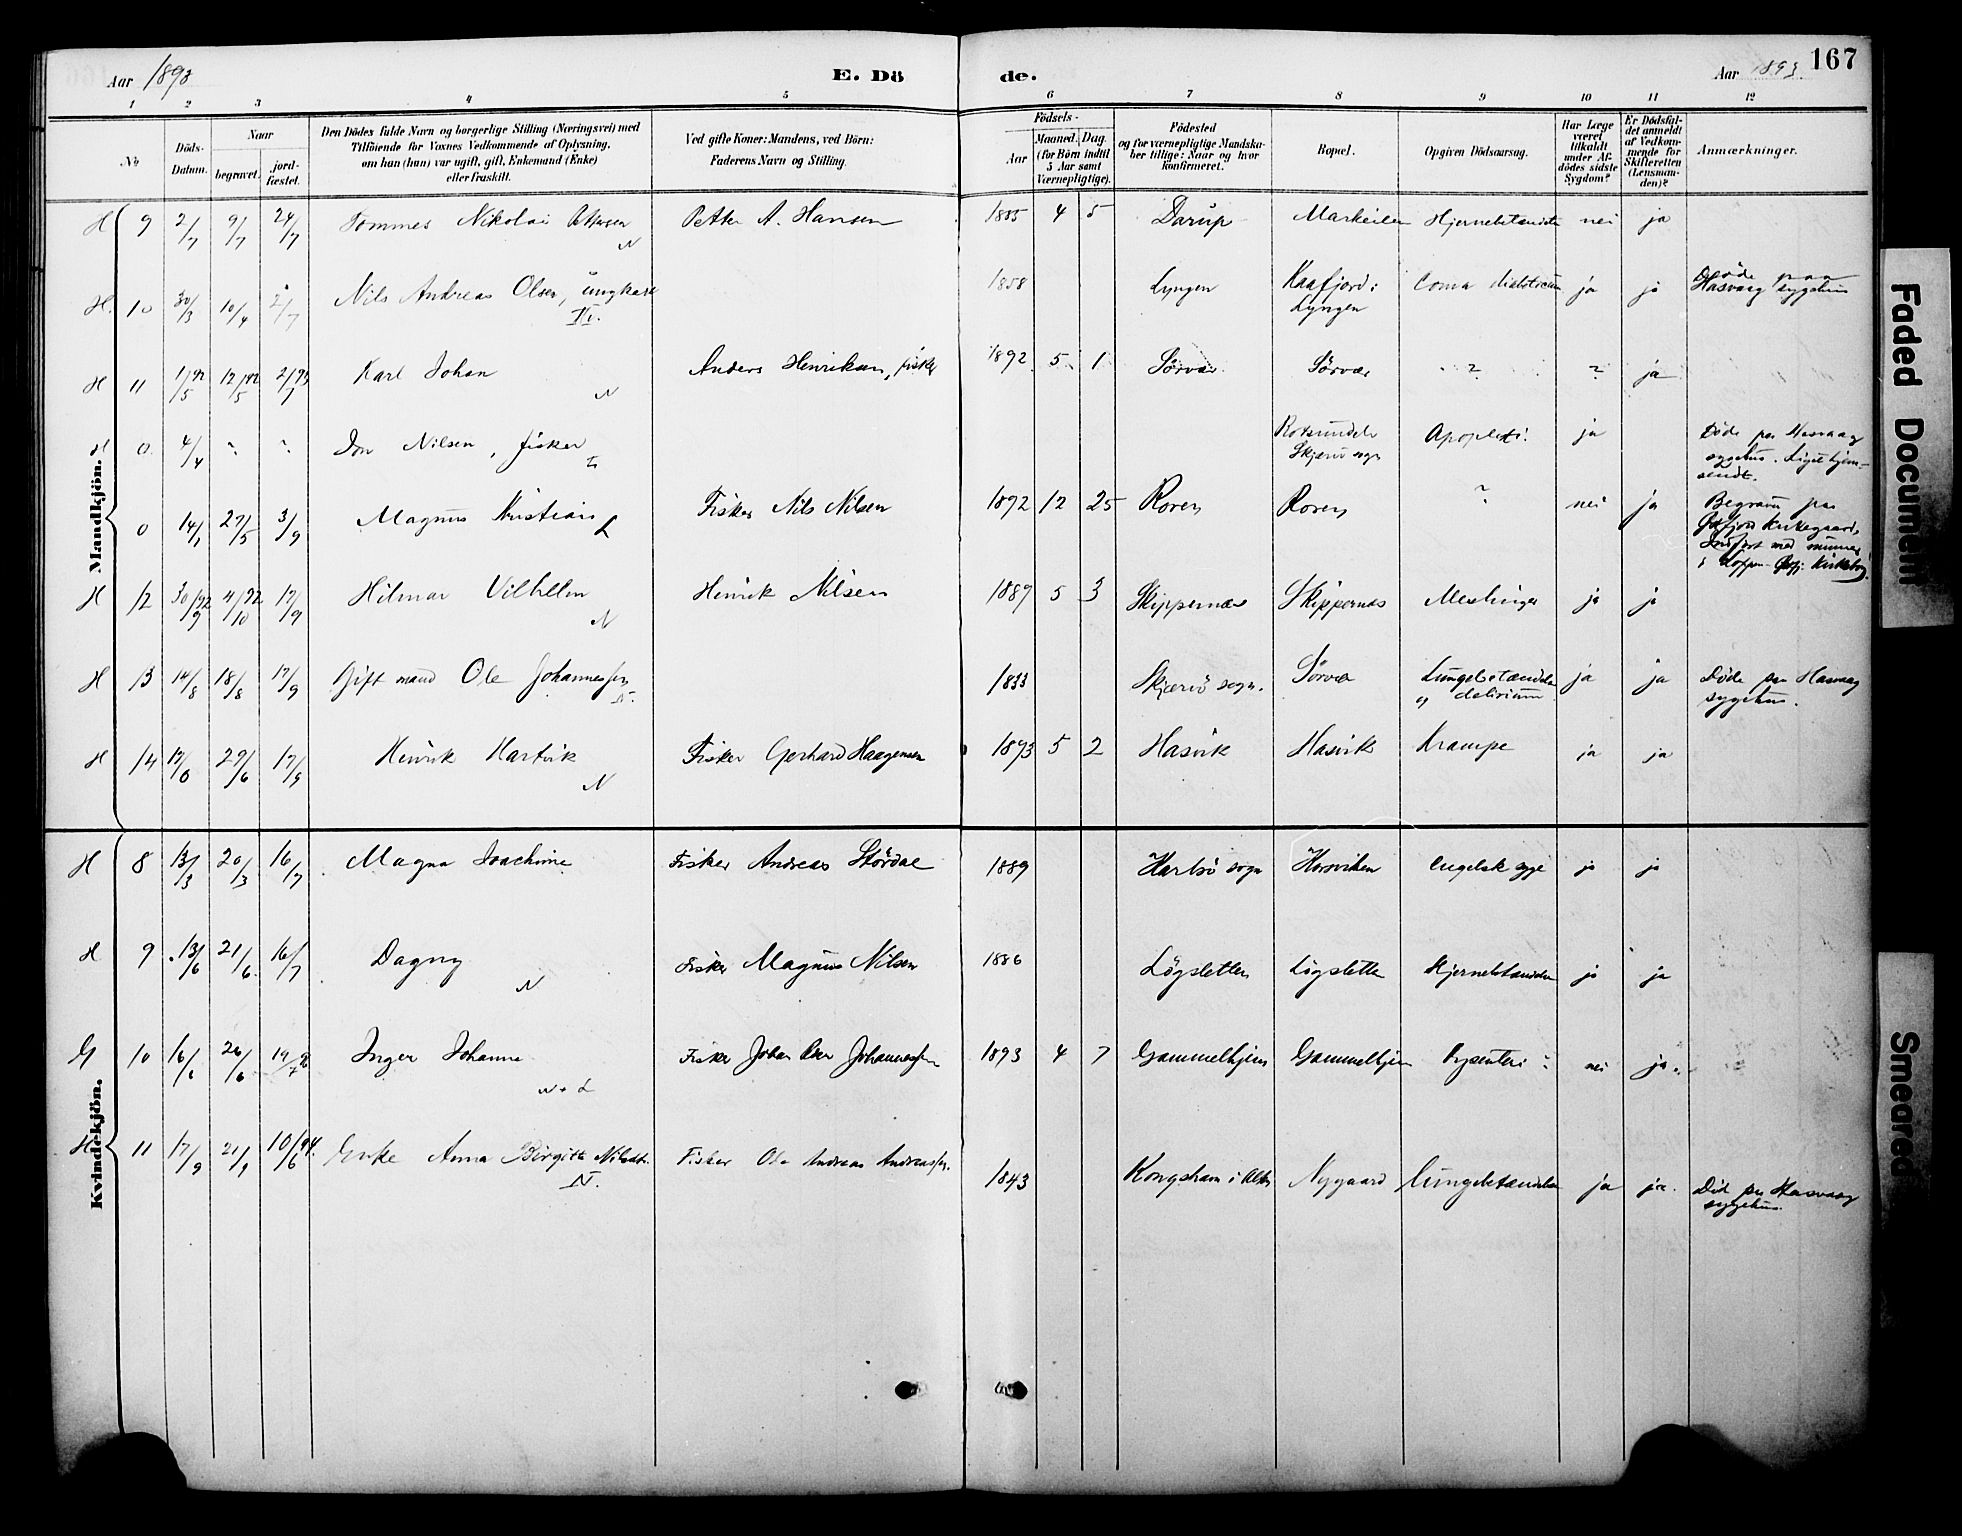 Aar 1893
E. Dö
de.
Aar 1893.
167
1 2 3 4 5 6 7 8 9 10 11 12
No
Döds-
Datum.
Naar
begravet.
jord-
fæstet.
Den Dödes fulde Navn og borgerlige Stilling (Næringsvei) med
Tilföiende for Voxnes Vedkommende af Oplysning,
om han (hun) var ugift, gift, Enkemand (Enke)
eller fraskilt.
Ved gifte Koner: Mandens, ved Börn:
Faderens Navn og Stilling.
Födsels-
Aar
Maaned. Dag
(for Börn indtil
5 Aar samt
Værnepligtige).
Födested
og for værnepligtige Mandska-
ber tillige: Naar og hvor
konfirmeret.
Bopæl.
Opgiven Dödsaarsag.
Har Læge
været
tilkaldt
under Af-
dödes sidste
Sygdom?
Er Dödsfal-
det anmeldt
af Vedkom-
mende for
Skifteretten
(Lensman-
den)?
Anmærkninger.
Mandkjön.
H 9 2/7 9/7 24/7 Tommes Nikolai Pettersen Petter A. Hansen 1885 4 5 Darup Markeilen Hjernebetændelse nei ja
N
H. 10 30/3 10/4 2/7 Nils Andreas Olsen, ungkarl 1858 Lyngen Kaafjord i Coma diabeticum ja ja Döde paa
Lyngen Hasvaag sygehus
H 11 1/5 92 12/5 92 2/7 93 Karl Johan Anders Henriksen, fisker 1892 5 1 Sörvær Sörvær ? ? ja
N
H 0 4/4 ~ ~ Jon Nilsen, fisker Rotsundelv Apoplexi. ja Döde paa Hasvaag
Skjervö sogn sygehus. Liget hjem-
sendt.
0 14/1 27/5 3/9 Magnus Kristian Fisker Nils Nilsen 1892 12 25 Roren Roren ? nei ja Begravet paa
Kirkegaard,
H 12 30/9 92 4/10 92 17/9 Hilmar Vilhelm Henrik Nilsen 1889 5 3 Skippernæs Skippernæs Meslinger ja ja
N
H 13 14/8 18/8 17/9 Gift mand Ole Johannessen 1833 Skjervö sogn. Sörvær Lungebetændelse ja ja Döde paa Hasvaag
N. og delirium sygehus.
H 14 29/6 17/9 Henrik Hartvik Fisker Gerhard Haagensen 1893 5 2 Hasvik Hasvik Krampe ja ja
N
Kvindekjön.
H 8 13/3 20/3 16/7 Magna Joachime Fisker Andreas Stördal 1889 Karlsö sogn Hasviken engelsk syge ja ja
H 9 13/6 21/6 16/7 Dagny Fisker Magnus Nilsen 1886 Lögsletten Lögsletten Hjernebetændelse ja ja
N
G 10 16/6 26/6 19/7 Inger Johanne Fisker Johan Johannessen 1893 4 7 Gammelhjem Gammelhjem Dysenteri ? nei ja
N + L
H 11 17/9 21/9 10/6 94. Enke Anna Birgitte Nilsdtr. Fisker Ole Andreas Andreassen. 1843 Kongshavn i Alten Nygaard Lungebetændelse ja ja. Död paa Hasvaag
N. sygehus.
Faded Document
Smeared